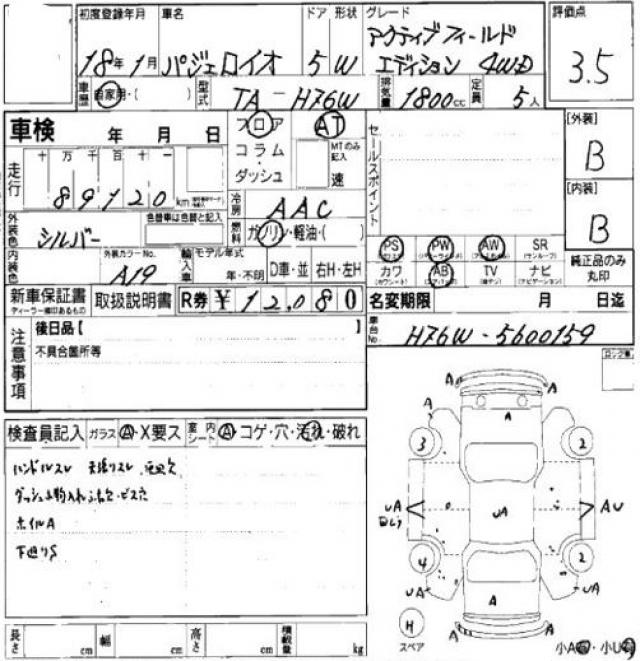 初度登録年月 車名 ドア 形状 グレード 評価点
18年1月 パジェロイオ 5 W アクティブフィールド
エディション 4WD 3.5
車歴 自家用・( ) 型式 TA-H76W 排気量 1800cc 定員 5人
車検 年 月 日 フロア AT セールスポイント [外装]
コラム・ MTのみ記入 B
走行 十 万 千 百 十 一 ダッシュ 速
89120 km 冷房 AAC [内装]
外装色 シルバー 色替車は色替と記入 燃料 ガソリン・軽油・( ) B
PS PW AW SR
内装色 外装カラーNo. A19 輸入車 モデル年式 年・不明 D車・並 右H・左H カワ AB TV ナビ 純正品のみ丸印
新車保証書 取扱説明書 R券 ¥12,080 名変期限 月 日迄
ディーラー捺印あるもの
後日品【 】 車台No. H76W-5600159
注意事項 不具合箇所等
検査員記入 ガラス A・X要ス 室内シート A・コゲ・穴・汚れ・破れ
ハンドルスレ 天張リスレ
ホイルA
下廻りS
A A
A A
A
3 2
UA UA AU
4 2
UA A UA
H A A
スペア
長さ cm 幅 cm 高さ cm 積載量 kg 小A・小U